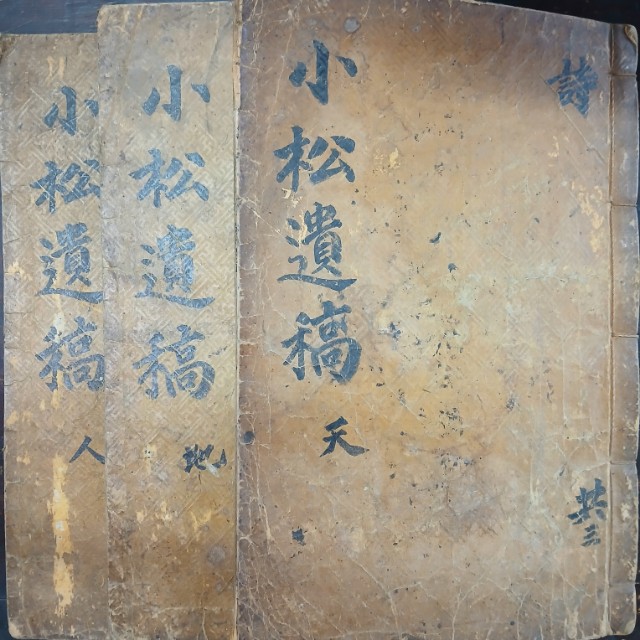 詩
共三
小松遺稿
天
小松遺稿
地
小松遺稿
人